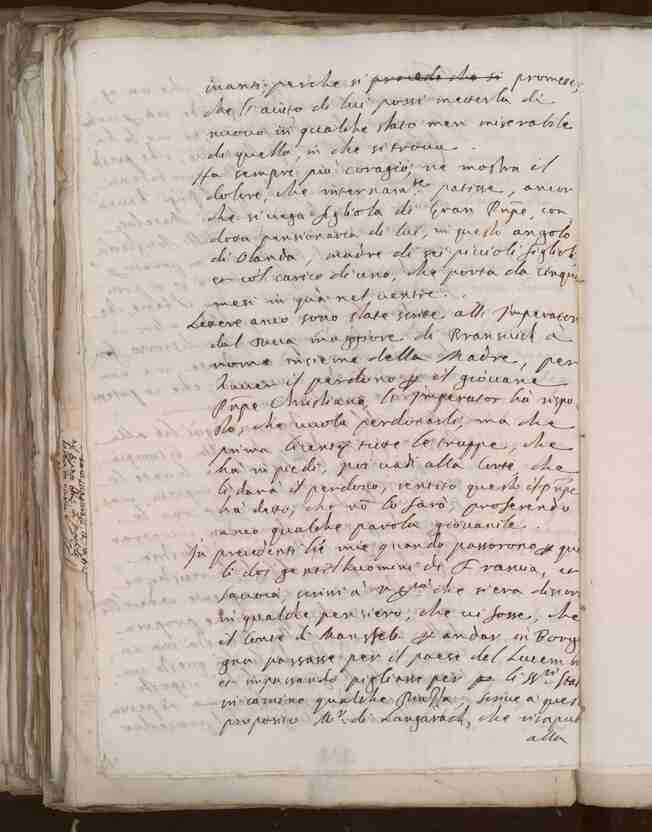 inanti, perche si procede che si promette,
che l'aiuto di lui possi metterla di
nuovo in qualche stato men miserabile
di quello, in che si trova.
Ha sempre più coragio, ne mostra il
dolore, che internam.te patisce, ancor
che si vega figliola di Gran Prñpe, con
dota pensionaria di lui, in questi angoli
di Olanda, madre di sei piccioli figlioli
et co'l carico di uno, che porta da cinque
mesi in quà nel ventre.
Lettere anco sono state scritte all'Imperator
dal Duca maggiore di Bransvich à
nome insieme della Madre, per
haver il perdono il giovane
Prñpe Christiano, l'Imperator hà rispo-
sto, che vuole perdonarli, ma che
prima licentij tutte le truppe, che
hà in piedi, poi vadi alla Corte, che
li darà il perdono, sentito questo il pñpe
hà detto, che nõ lo farà, proferendo
anco qualche parola giovanile.
In precedenti l're mie quando passorono que
li doi gentilhuomini di Francia, et
Savoia, scrissi à che s'era discor
in qualche pensiero, che vi fosse, che
il Conte di Mansfelt andar in Borgo
gna passasse per il paese del Lucemb
et in passando pigliasse per li SS.ri Stati
in camino qualche Piazza, scrive à ques
proposito M.r di Langarach, che risaput
alla